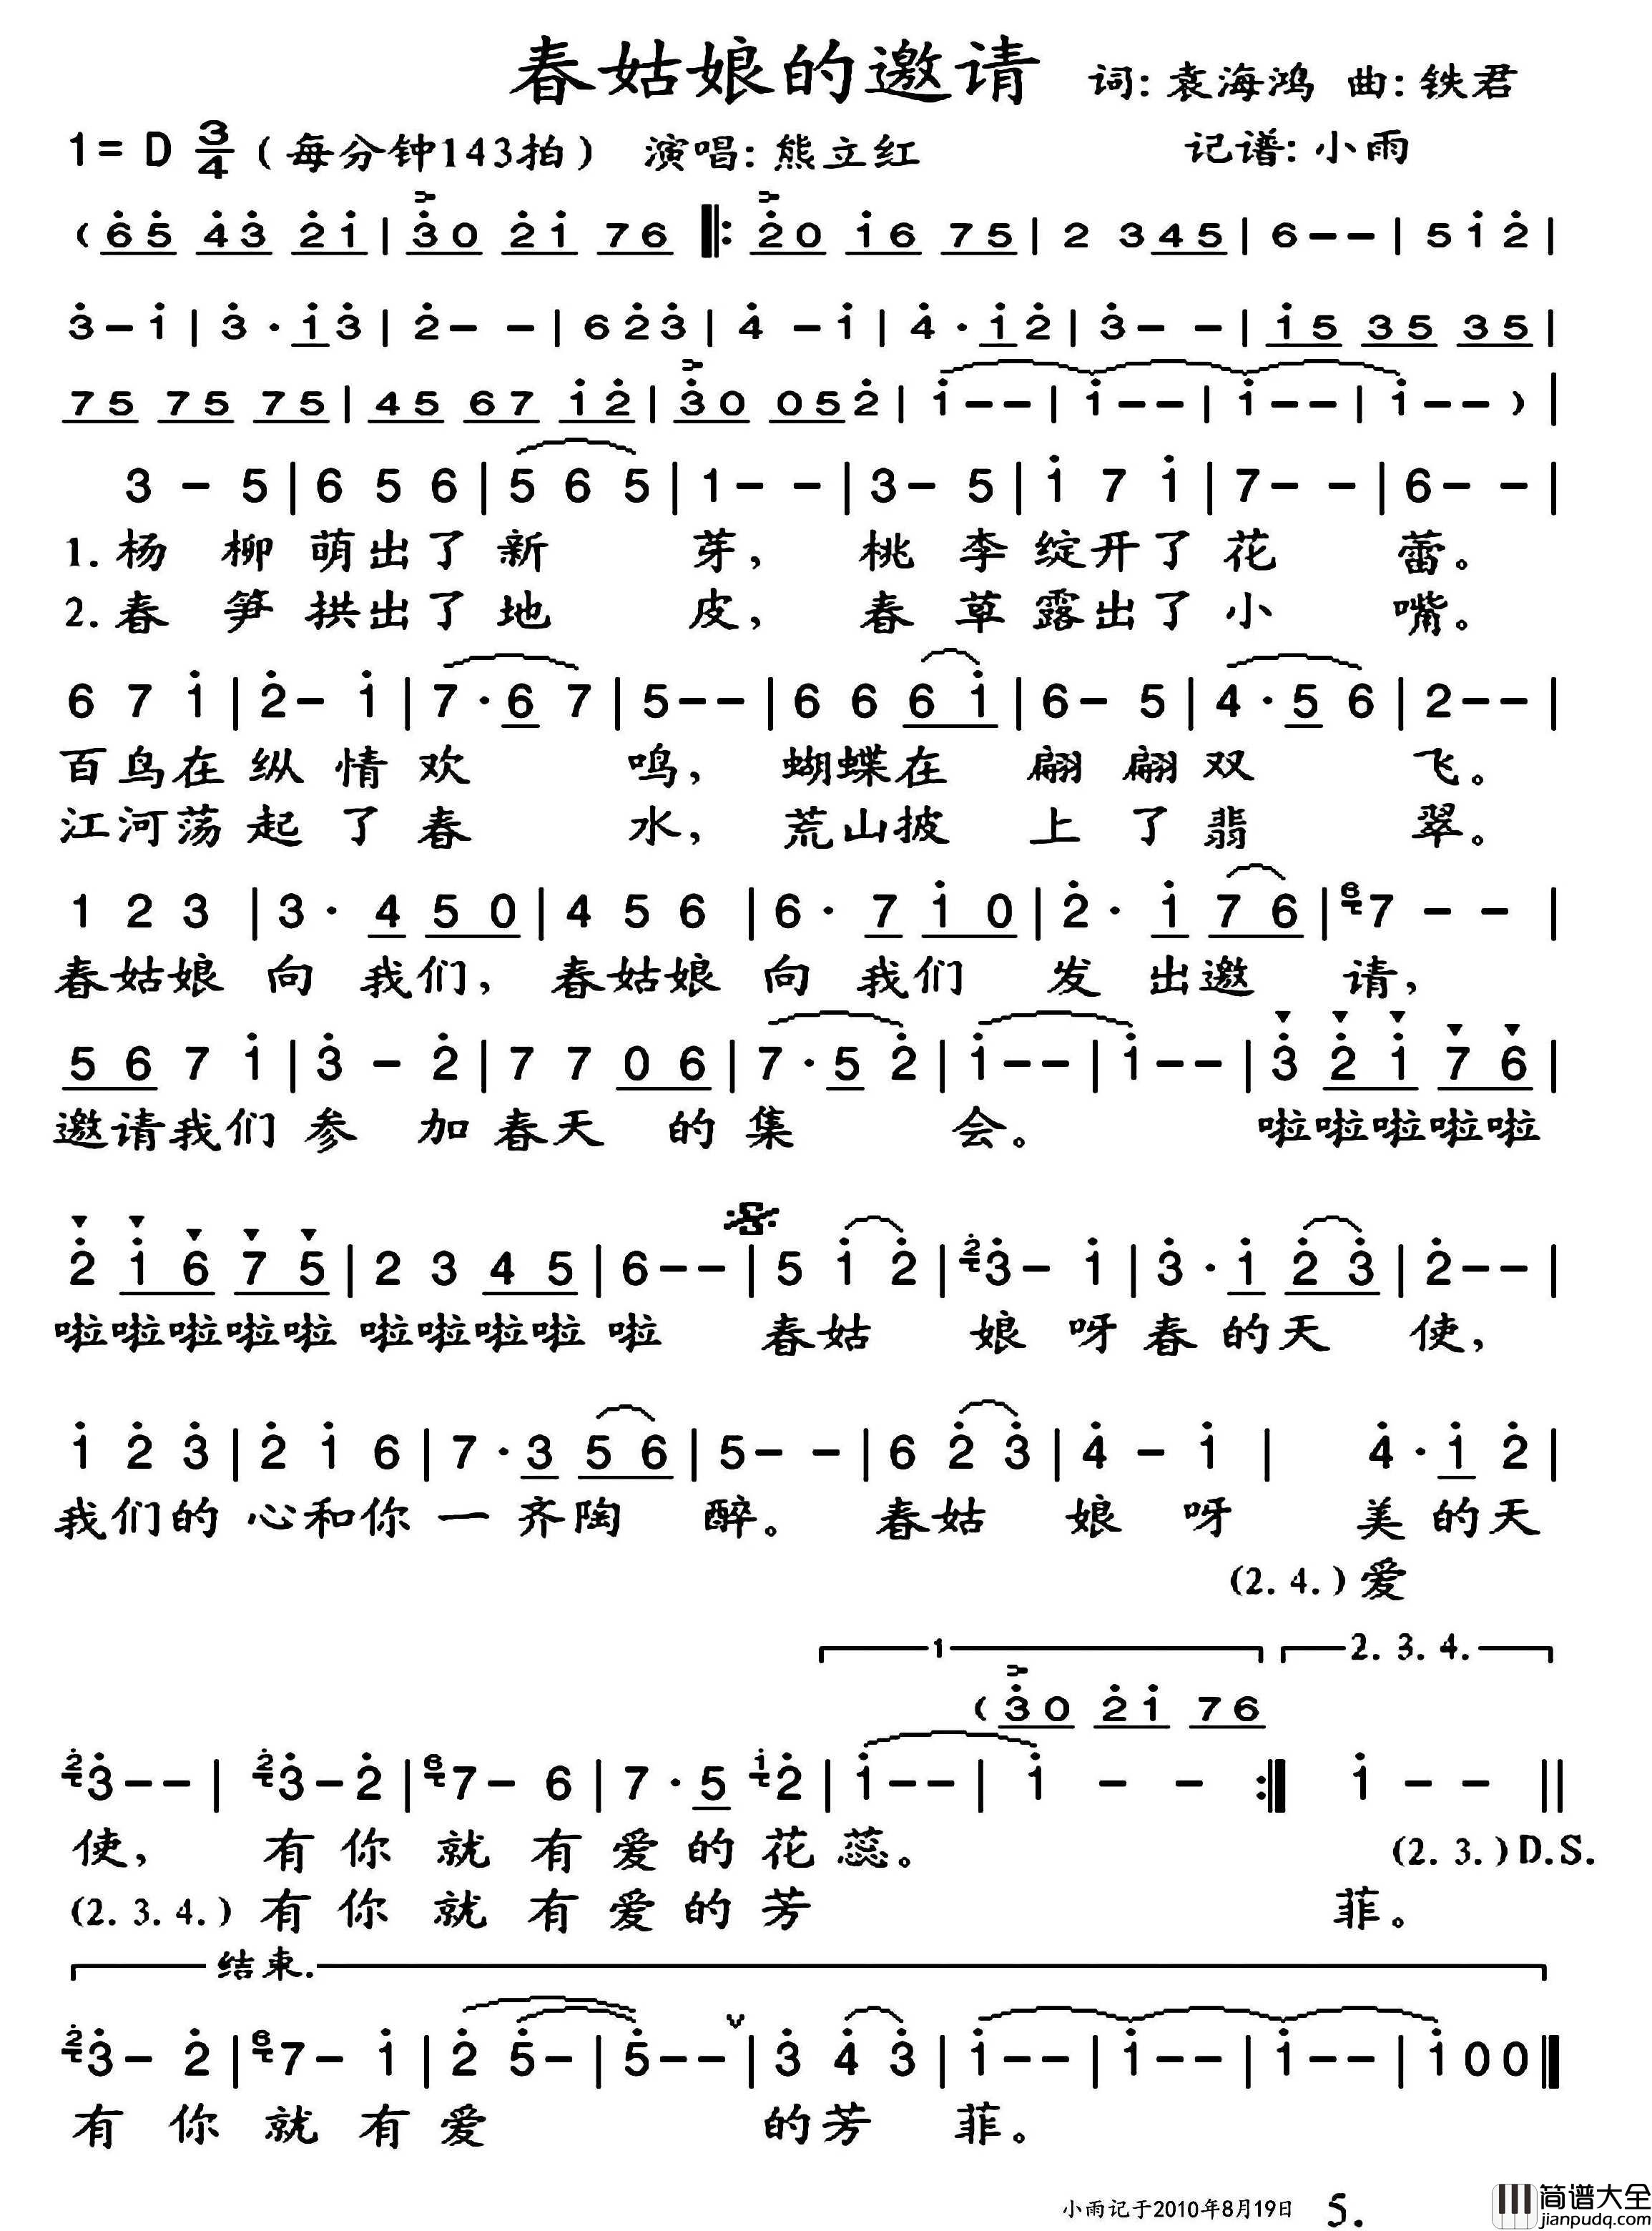 春姑娘的邀请 词:袁海鸿 曲:铁君
1= D 3/4 (每分钟143拍) 演唱:熊立红 记谱:小雨
( 6̇5̇ 4̇3̇ 2̇1̇ | 3̇0 2̇1̇ 76 ‖: 2̇0 1̇6 75 | 2 345 | 6-- | 51̇2̇ |
3̇-1̇ | 3̇·1̇3̇ | 2̇-- | 62̇3̇ | 4̇-1̇ | 4̇·1̇2̇ | 3̇-- | 1̇5 35 35 |
75 75 75 | 45 67 1̇2̇ | 3̇0 052̇ | 1̇-- | 1̇-- | 1̇-- | 1̇-- ) |
3-5 | 656 | 565 | 1-- | 3-5 | 1̇71̇ | 7-- | 6-- |
1.杨柳萌出了新芽,桃李绽开了花蕾。
2.春笋拱出了地皮,春草露出了小嘴。
671̇ | 2̇-1̇ | 7·67 | 5-- | 6661̇ | 6-5 | 4·56 | 2-- |
百鸟在纵情欢鸣,蝴蝶在翩翩双飞。
江河荡起了春水,荒山披上了翡翠。
123 | 3·450 | 456 | 6·71̇0 | 2̇·1̇76 | 67-- |
春姑娘向我们,春姑娘向我们发出邀请,
5671̇ | 3̇-2̇ | 7706 | 7·52̇ | 1̇-- | 1̇-- | 3̇2̇1̇76 |
邀请我们参加春天的集会。啦啦啦啦啦
2̇1̇675 | 2345 | 6-- | 51̇2̇ | 2̇3̇-1̇ | 3̇·1̇2̇3̇ | 2̇-- |
啦啦啦啦啦 啦啦啦啦啦 春姑娘呀春的天使,
1̇2̇3̇ | 2̇1̇6 | 7·356 | 5-- | 62̇3̇ | 4̇-1̇ | 4̇·1̇2̇ |
我们的心和你一齐陶醉。春姑娘呀美的天
(2.4.)爱
1 2.3.4.
(3̇0 2̇1̇ 76
2̇3̇-- | 2̇3̇-2̇ | 67-6 | 7·51̇2̇ | 1̇-- | 1̇-- :‖ 1̇-- ‖
使,有你就有爱的花蕊。 (2.3.)D.S.
(2.3.4.)有你就有爱的芳菲。
结束.
2̇3̇-2̇ | 67-1̇ | 2̇5̇- | 5̇-- | 3̇4̇3̇ | 1̇-- | 1̇-- | 1̇-- | 1̇00 ‖
有你就有爱的芳菲。
小雨记于2010年8月19日 5.
简谱大全
jianpudq.com